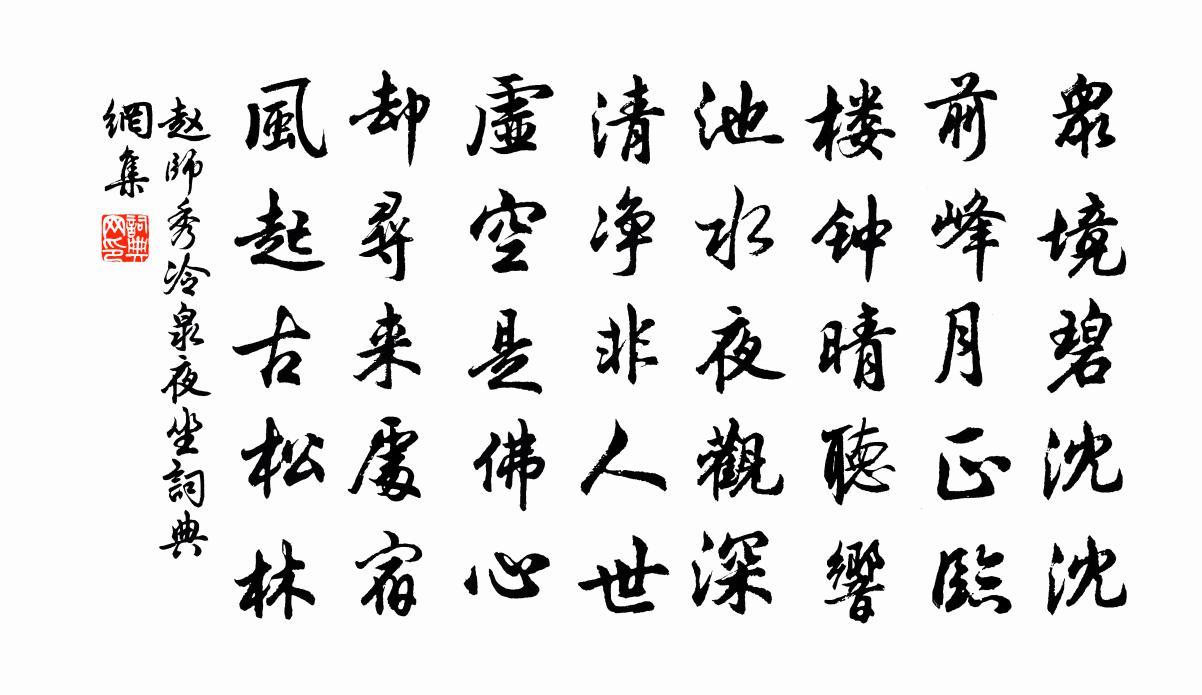 眾境碧沈沈
前峰月正臨
楼钟晴聽響
池水夜觀深
清净非人世
虛空是佛心
却尋来處宿
風起古松林
赵師秀冷泉夜坐詞典
網集
詞典
网印